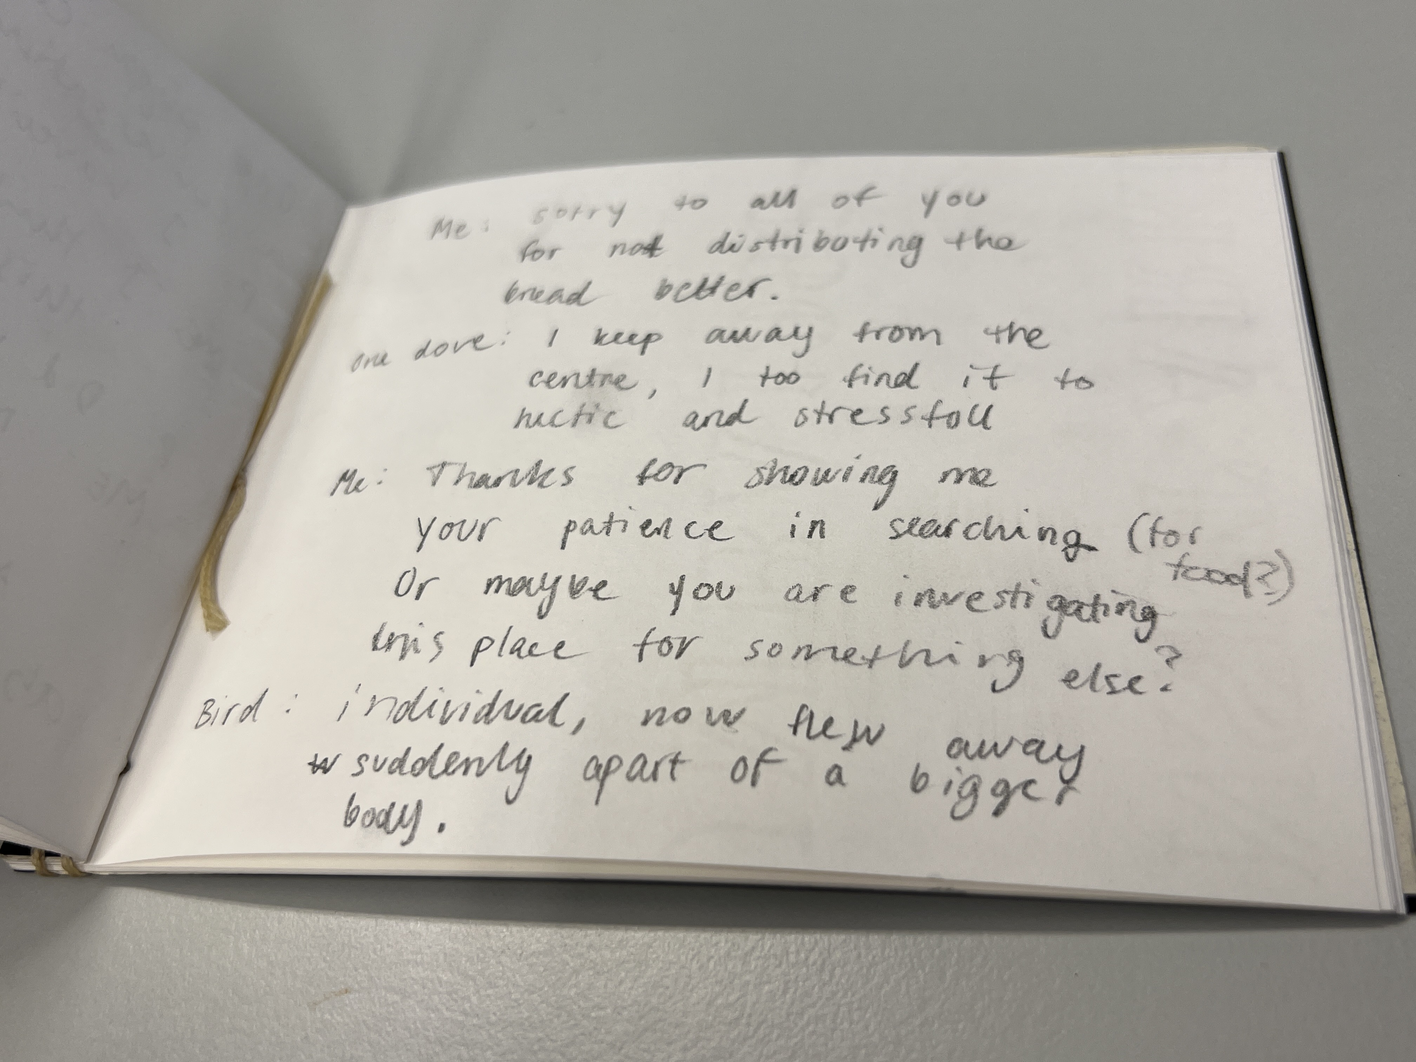 Me: sorry to all of you
for not distributing the
bread better.
one dove: I keep away from the
centre, I too find it to
hectic and stressfull
Me: Thanks for showing me
your patience in searching (for
food?)
Or maybe you are investigating
this place for something else?
Bird: individual, now flew away
suddenly apart of a bigger
body.